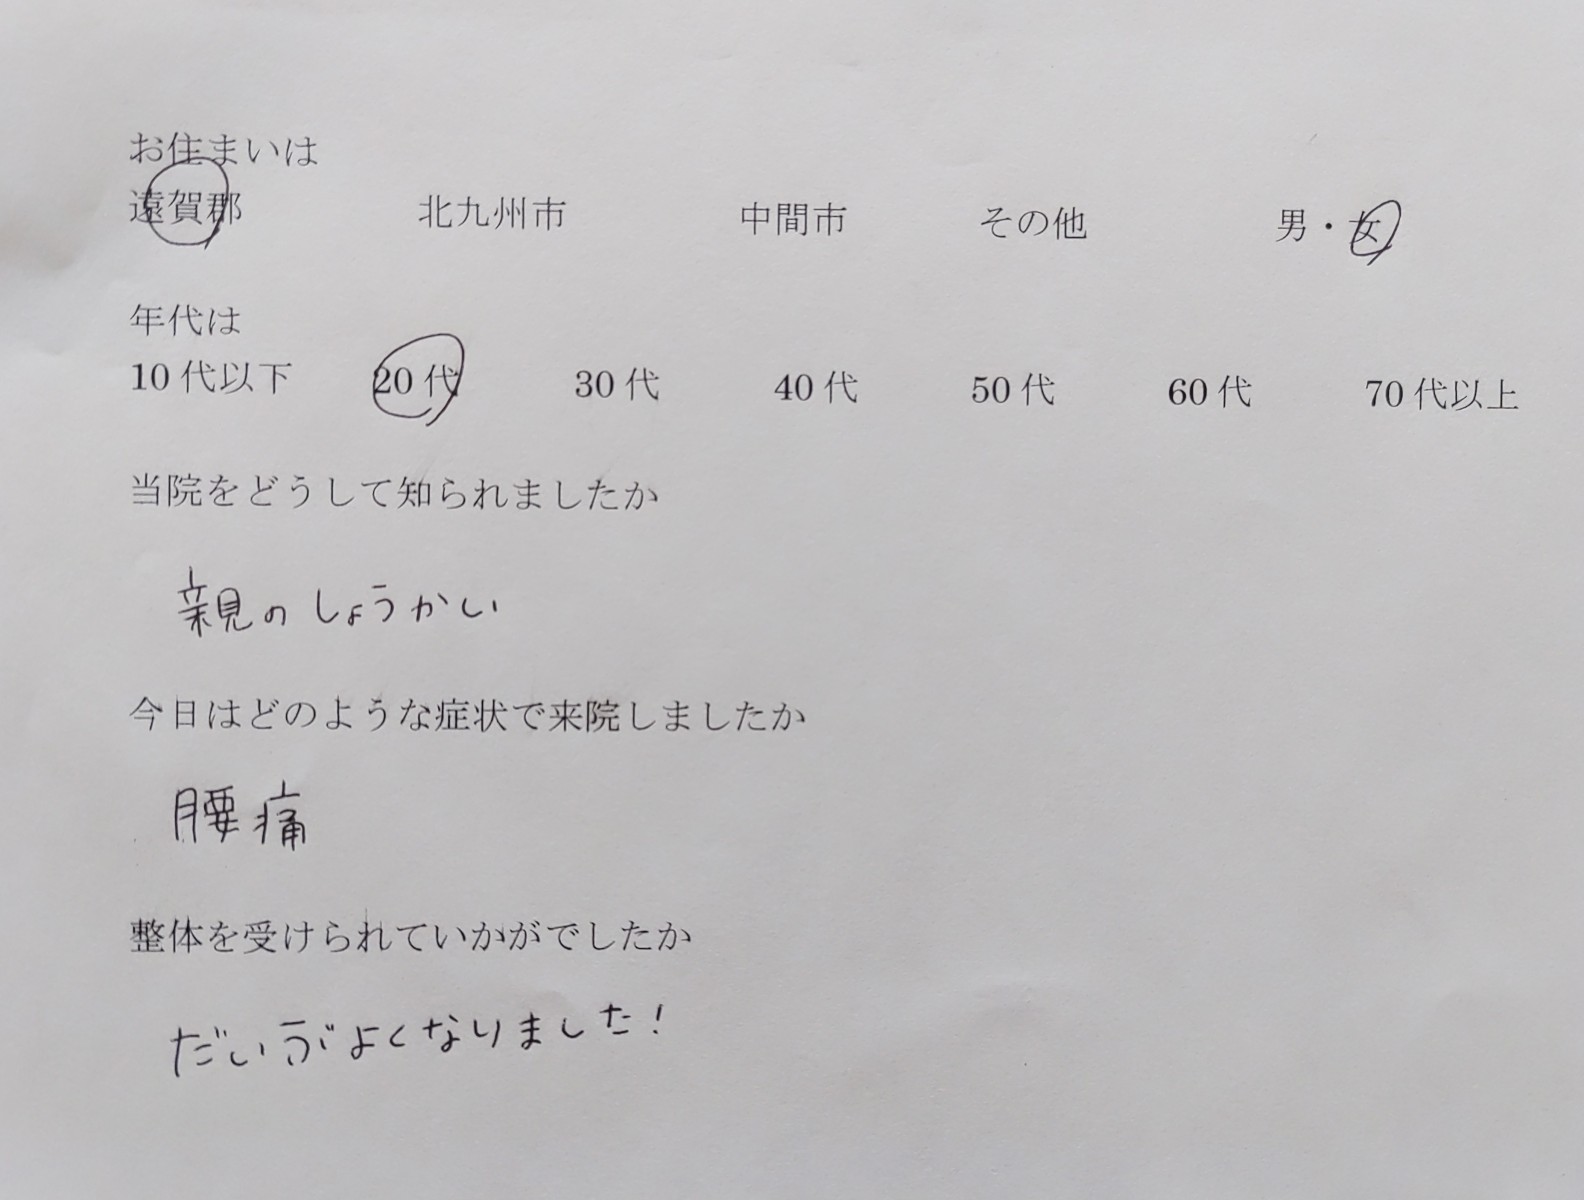 お住まいは
遠賀郡 北九州市 中間市 その他 男・女
年代は
10代以下 20代 30代 40代 50代 60代 70代以上
当院をどうして知られましたか
親のしょうかい
今日はどのような症状で来院しましたか
腰痛
整体を受けられていかがでしたか
だいぶよくなりました!